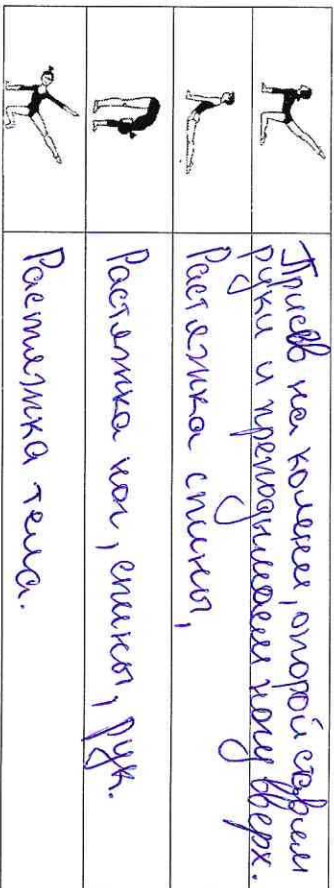 Присев на колени, опорой ставим
руки и преподымаем ногу вверх.
Растяжка спины,
Растяжка ног, спины, рук.
Растяжка тела.